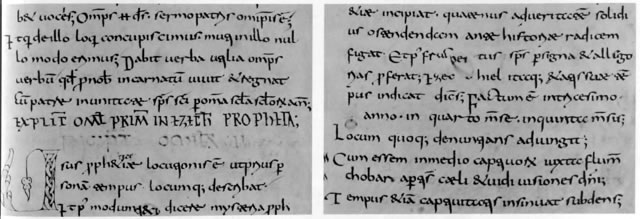 bere voces; omps & ds sermo patris omnipotentis e;
Atq; de illo loqui concupiscimus in quo nullo
lo modo tenemus; Dabit verba vestra omps
verbu qd p nob incarnatum vivit & regnat
cum patre in unitate sps sci p omia scla sclor am;
EXPLICIT OML PRIMA IN EZECH PROPHETA;
Usus pph&icae locutionis e ut prius p
sona tempus locumq; describat
& post modum dicere mysteria pph
&iae incipiat quatenus ad veritatem solidi
us ostendendam ante historiae radicem
figat & post fructus sps p signa & allego
rias pferat; Ezechiel itaq; &atis suae te
pus indicat dicens; Factum e in tricesimo
anno in quarto mse in quinta msis;
Locum quoq; denuntians adiungit;
Cum essem in medio captivoru iuxta fluviu
chobar apti s caeli & vidi visiones dni;
Tempus &ia captivitatis insinuat subdens;